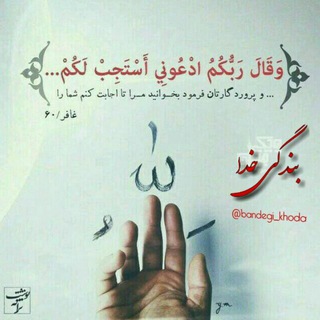 وَقَالَ رَبُّكُمُ ادْعُونِي أَسْتَجِبْ لَكُمْ...
... و پروردگارتان فرمود بخوانید مرا تا اجابت کنم شما را
غافر/۶۰
الله
بندگی خدا
@bandegi_khoda
y m